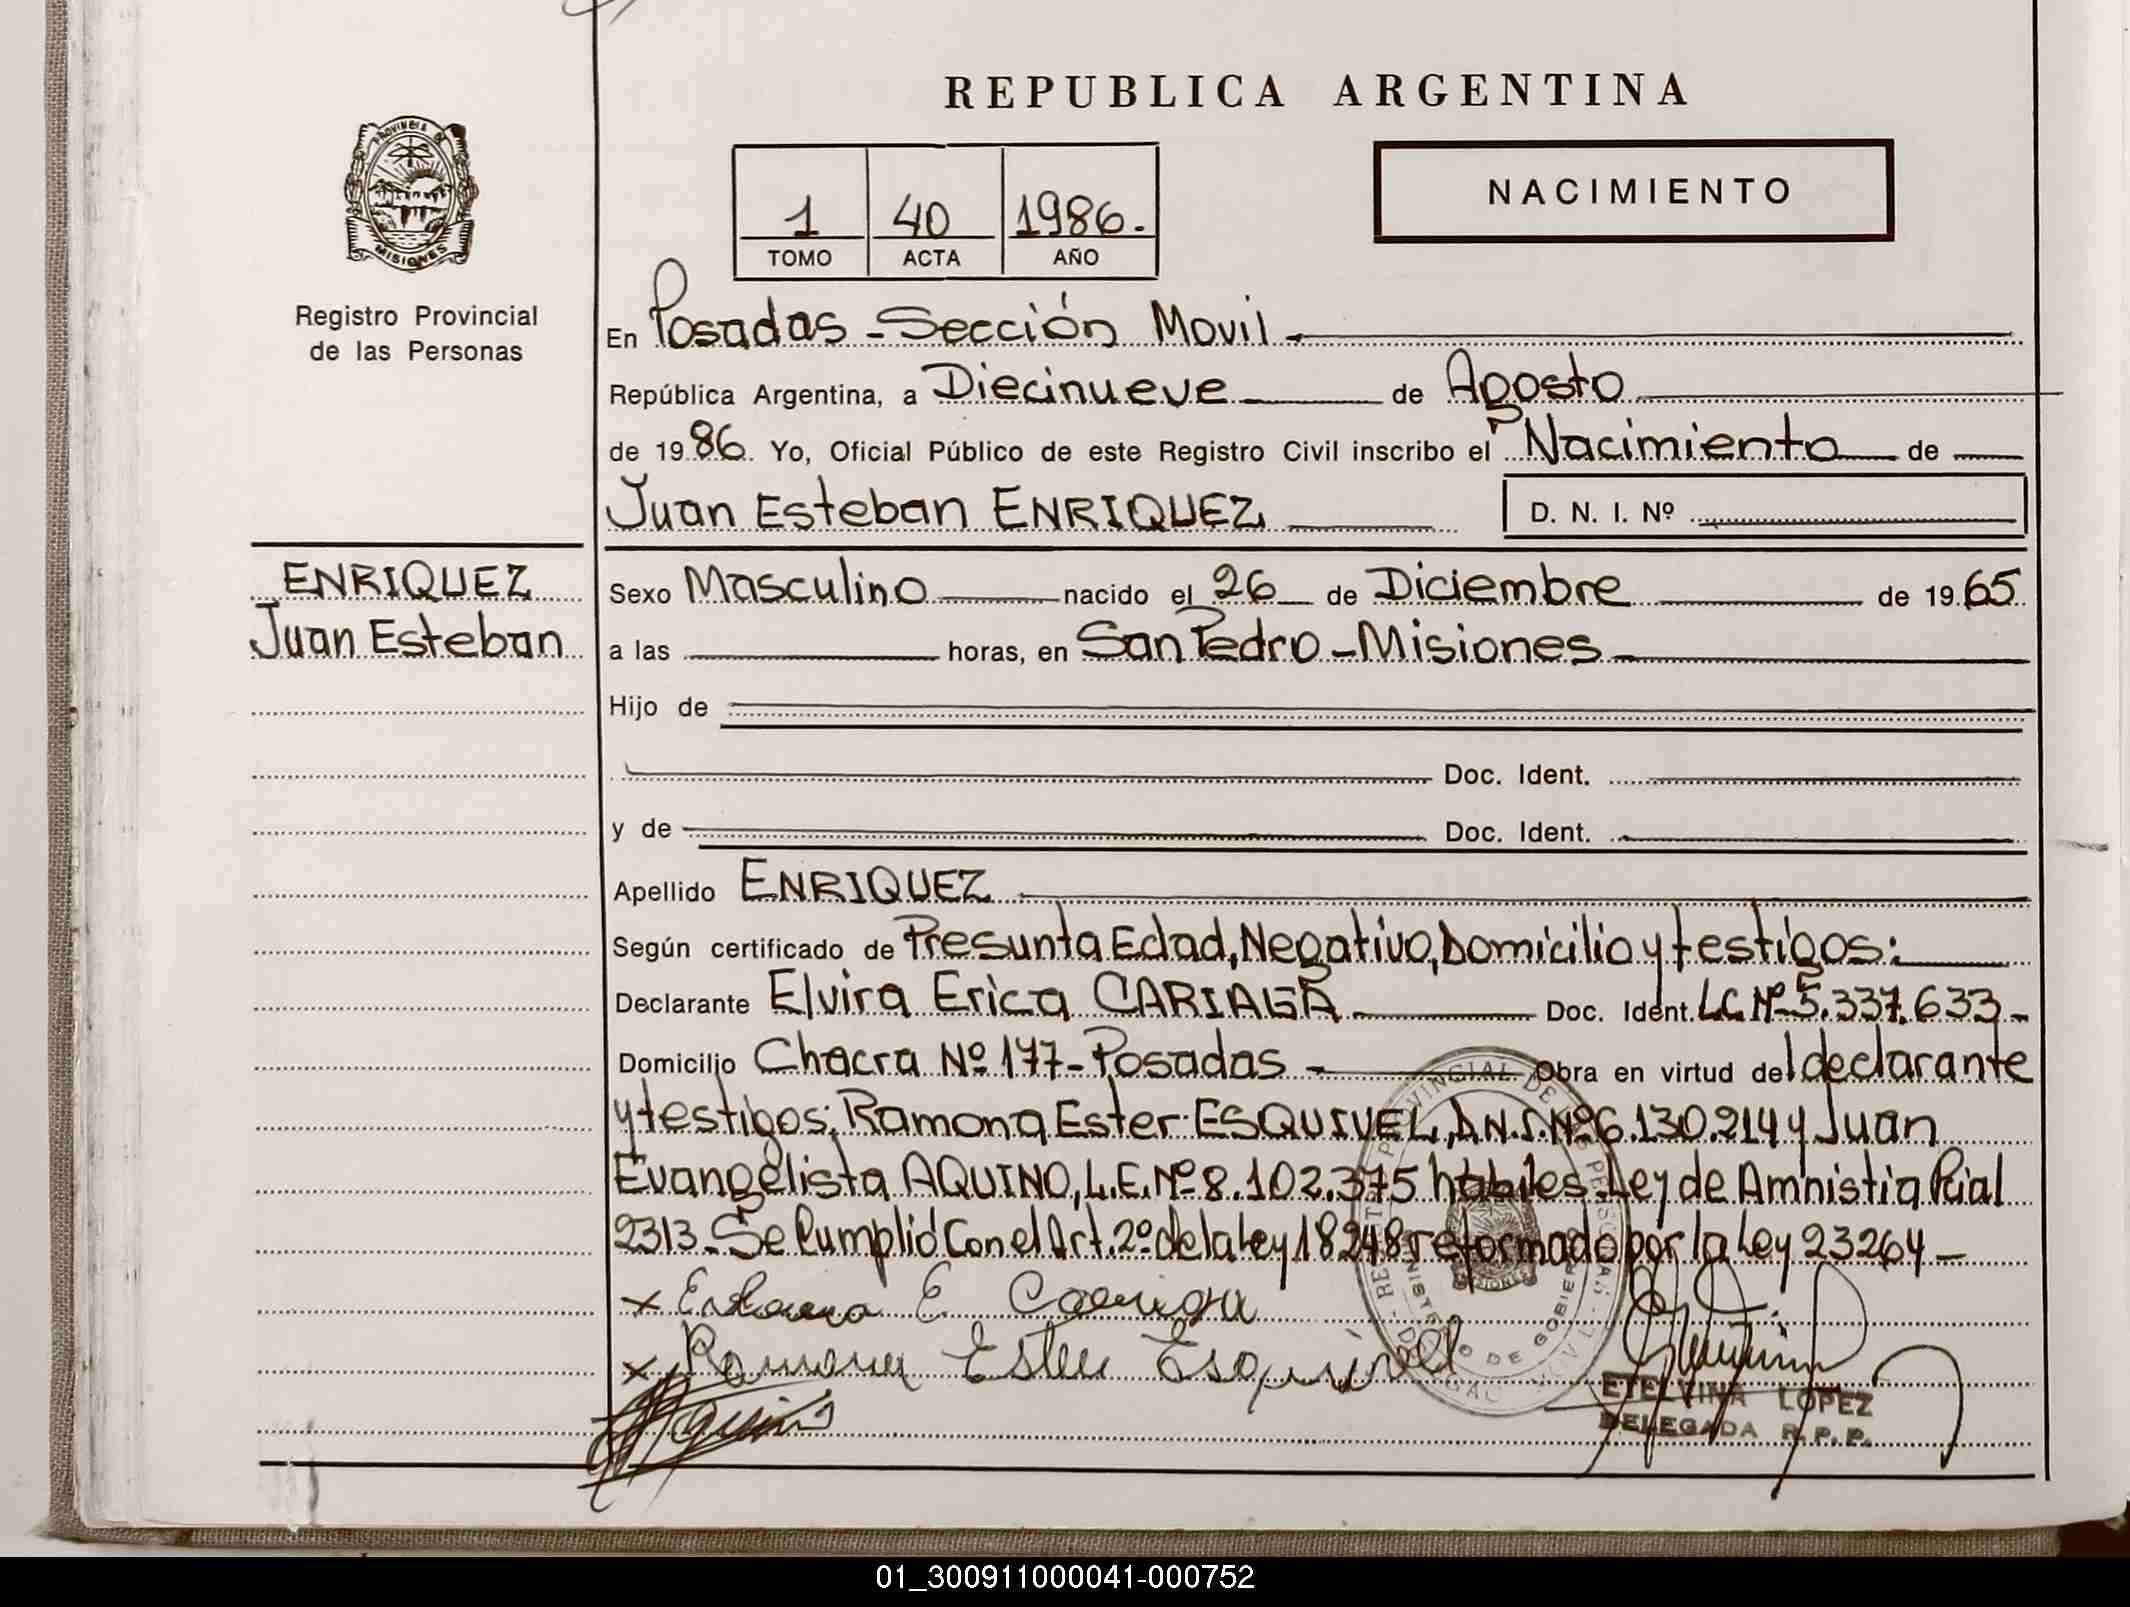 REPUBLICA ARGENTINA
PROVINCIA DE MISIONES
Registro Provincial
de las Personas
NACIMIENTO
1 40 1986.
TOMO ACTA AÑO
En Posadas - Sección Movil
República Argentina, a Diecinueve de Agosto
de 1986. Yo, Oficial Público de este Registro Civil inscribo el Nacimiento de
Juan Esteban ENRIQUEZ
D. N. I. Nº
ENRIQUEZ
Juan Esteban
Sexo Masculino nacido el 26 de Diciembre de 1965
a las horas, en San Pedro - Misiones
Hijo de
Doc. Ident.
y de Doc. Ident.
Apellido ENRIQUEZ
Según certificado de Presunta Edad, Negativo, Domicilio y testigos:
Declarante Elvira Erica CARIAGA Doc. Ident. L.C. Nº 5.337.633-
Domicilio Chacra Nº 177 - Posadas - Obra en virtud del declarante
y testigos: Ramona Ester ESQUIVEL, D.N.I. Nº 6.130.214 y Juan
Evangelista AQUINO, L.E. Nº 8.102.375 habiles. Ley de Amnistia Pcial
2313. Se Cumplió Con el Art. 2º de la Ley 18248 reformado por la Ley 23264 -
x E. Cariaga
x Ramona Ester Esquivel
Aquino
ETELVINA LOPEZ
DELEGADA R.P.P.
01_300911000041-000752